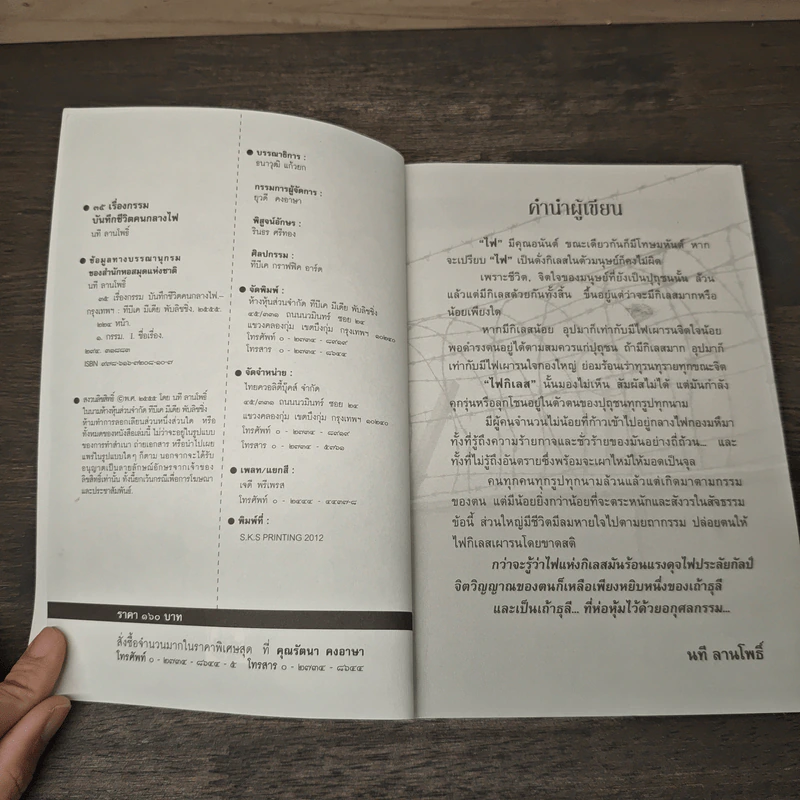 ● ๓๕ เรื่องกรรม
บันทึกชีวิตคนกลางไฟ
นที ลานโพธิ์
● ข้อมูลทางบรรณานุกรม
ของสำนักหอสมุดแห่งชาติ
นที ลานโพธิ์
๓๕ เรื่องกรรม บันทึกชีวิตคนกลางไฟ.--
กรุงเทพฯ : ทีบีเค มีเดีย พับลิชชิ่ง, ๒๕๕๕.
๒๒๔ หน้า.
๑. กรรม. I. ชื่อเรื่อง.
ISBN
● สงวนลิขสิทธิ์ ©พ.ศ. ๒๕๕๕ โดย นที ลานโพธิ์
ในนามห้างหุ้นส่วนจำกัด ทีบีเค มีเดีย พับลิชชิ่ง
ห้ามทำการลอกเลียนส่วนหนึ่งส่วนใด หรือ
ทั้งหมดของหนังสือเล่มนี้ ไม่ว่าจะอยู่ในรูปแบบ
ของการทำสำเนา ถ่ายเอกสาร หรือนำไปเผย
แพร่ในรูปแบบใดๆ ก็ตาม นอกจากจะได้รับ
อนุญาตเป็นลายลักษณ์อักษรจากเจ้าของ
ลิขสิทธิ์เท่านั้น ทั้งนี้ยกเว้นกรณีเพื่อการโฆษณา
และประชาสัมพันธ์.
● บรรณาธิการ :
ธนาวุฒิ แก้วยก
กรรมการผู้จัดการ :
ยุวดี คงอาษา
พิสูจน์อักษร :
รินธร ศรีทอง
ศิลปกรรม :
ทีบีเค กราฟฟิค อาร์ต
● จัดพิมพ์ :
ห้างหุ้นส่วนจำกัด ทีบีเค มีเดีย พับลิชชิ่ง
๔๕/๓๓๑ ถนนนวมินทร์ ซอย ๒๔
แขวงคลองกุ่ม เขตบึงกุ่ม กรุงเทพฯ ๑๐๒๔๐
โทรศัพท์ ๐ - ๒๗๓๔ - ๘๖๒๗
โทรสาร ๐ - ๒๗๓๔ - ๘๖๔๔
● จัดจำหน่าย :
ไทยควอลิตี้บุ๊คส์ จำกัด
๔๕/๓๓๑ ถนนนวมินทร์ ซอย ๒๔
แขวงคลองกุ่ม เขตบึงกุ่ม กรุงเทพฯ ๑๐๒๔๐
โทรศัพท์ ๐ - ๒๗๓๔ - ๘๖๒๗
โทรสาร ๐ - ๒๗๓๔ - ๕๗๖๑
● เพลท/แยกสี :
เจดี พรีเพรส
โทรศัพท์ ๐ - ๒๔๔๔ - ๔๔๓๗-๘
● พิมพ์ที่ :
S.K.S PRINTING 2012
ราคา ๑๖๐ บาท
สั่งซื้อจำนวนมากในราคาพิเศษสุด ที่ คุณรัตนา คงอาษา
โทรศัพท์ ๐ - ๒๗๓๔ - ๘๖๔๔ - ๕ โทรสาร ๐ - ๒๗๓๔ - ๘๖๔๔
คำนำผู้เขียน
"ไฟ" มีคุณอนันต์ ขณะเดียวกันก็มีโทษมหันต์ หาก
จะเปรียบ "ไฟ" เป็นดั่งกิเลสในตัวมนุษย์ก็คงไม่ผิด
เพราะชีวิต, จิตใจของมนุษย์ที่ยังเป็นปุถุชนนั้น ล้วน
แล้วแต่มีกิเลสด้วยกันทั้งสิ้น ขึ้นอยู่แต่ว่าจะมีกิเลสมากหรือ
น้อยเพียงใด
หากมีกิเลสน้อย อุปมาก็เท่ากับมีไฟเผารนจิตใจน้อย
พอดำรงตนอยู่ได้ตามสมควรแก่ปุถุชน ถ้ามีกิเลสมาก อุปมาก็
เท่ากับมีไฟเผารนใจกองใหญ่ ย่อมร้อนเร่าทุรนทุรายทุกขณะจิต
"ไฟกิเลส" นั้นมองไม่เห็น สัมผัสไม่ได้ แต่มันกำลัง
คุกรุ่นหรือลุกโชนอยู่ในตัวตนของปุถุชนทุกรูปทุกนาม
มีผู้คนจำนวนไม่น้อยที่ก้าวเข้าไปอยู่กลางไฟกองมหึมา
ทั้งที่รู้ถึงความร้ายกาจและชั่วร้ายของมันอย่างถี่ถ้วน... และ
ทั้งที่ไม่รู้ถึงอันตรายซึ่งพร้อมจะเผาไหม้ให้มอดเป็นจุล
คนทุกคนทุกรูปทุกนามล้วนแล้วแต่เกิดมาตามกรรม
ของตน แต่มีน้อยยิ่งกว่าน้อยที่จะตระหนักและสังวรในสัจธรรม
ข้อนี้ ส่วนใหญ่มีชีวิตมีลมหายใจไปตามยถากรรม ปล่อยตนให้
ไฟกิเลสเผารนโดยขาดสติ
กว่าจะรู้ว่าไฟแห่งกิเลสมันร้อนแรงดุจไฟประลัยกัลป์
จิตวิญญาณของตนก็เหลือเพียงหยิบหนึ่งของเถ้าธุลี
และเป็นเถ้าธุลี... ที่ห่อหุ้มไว้ด้วยอกุศลกรรม...
นที ลานโพธิ์